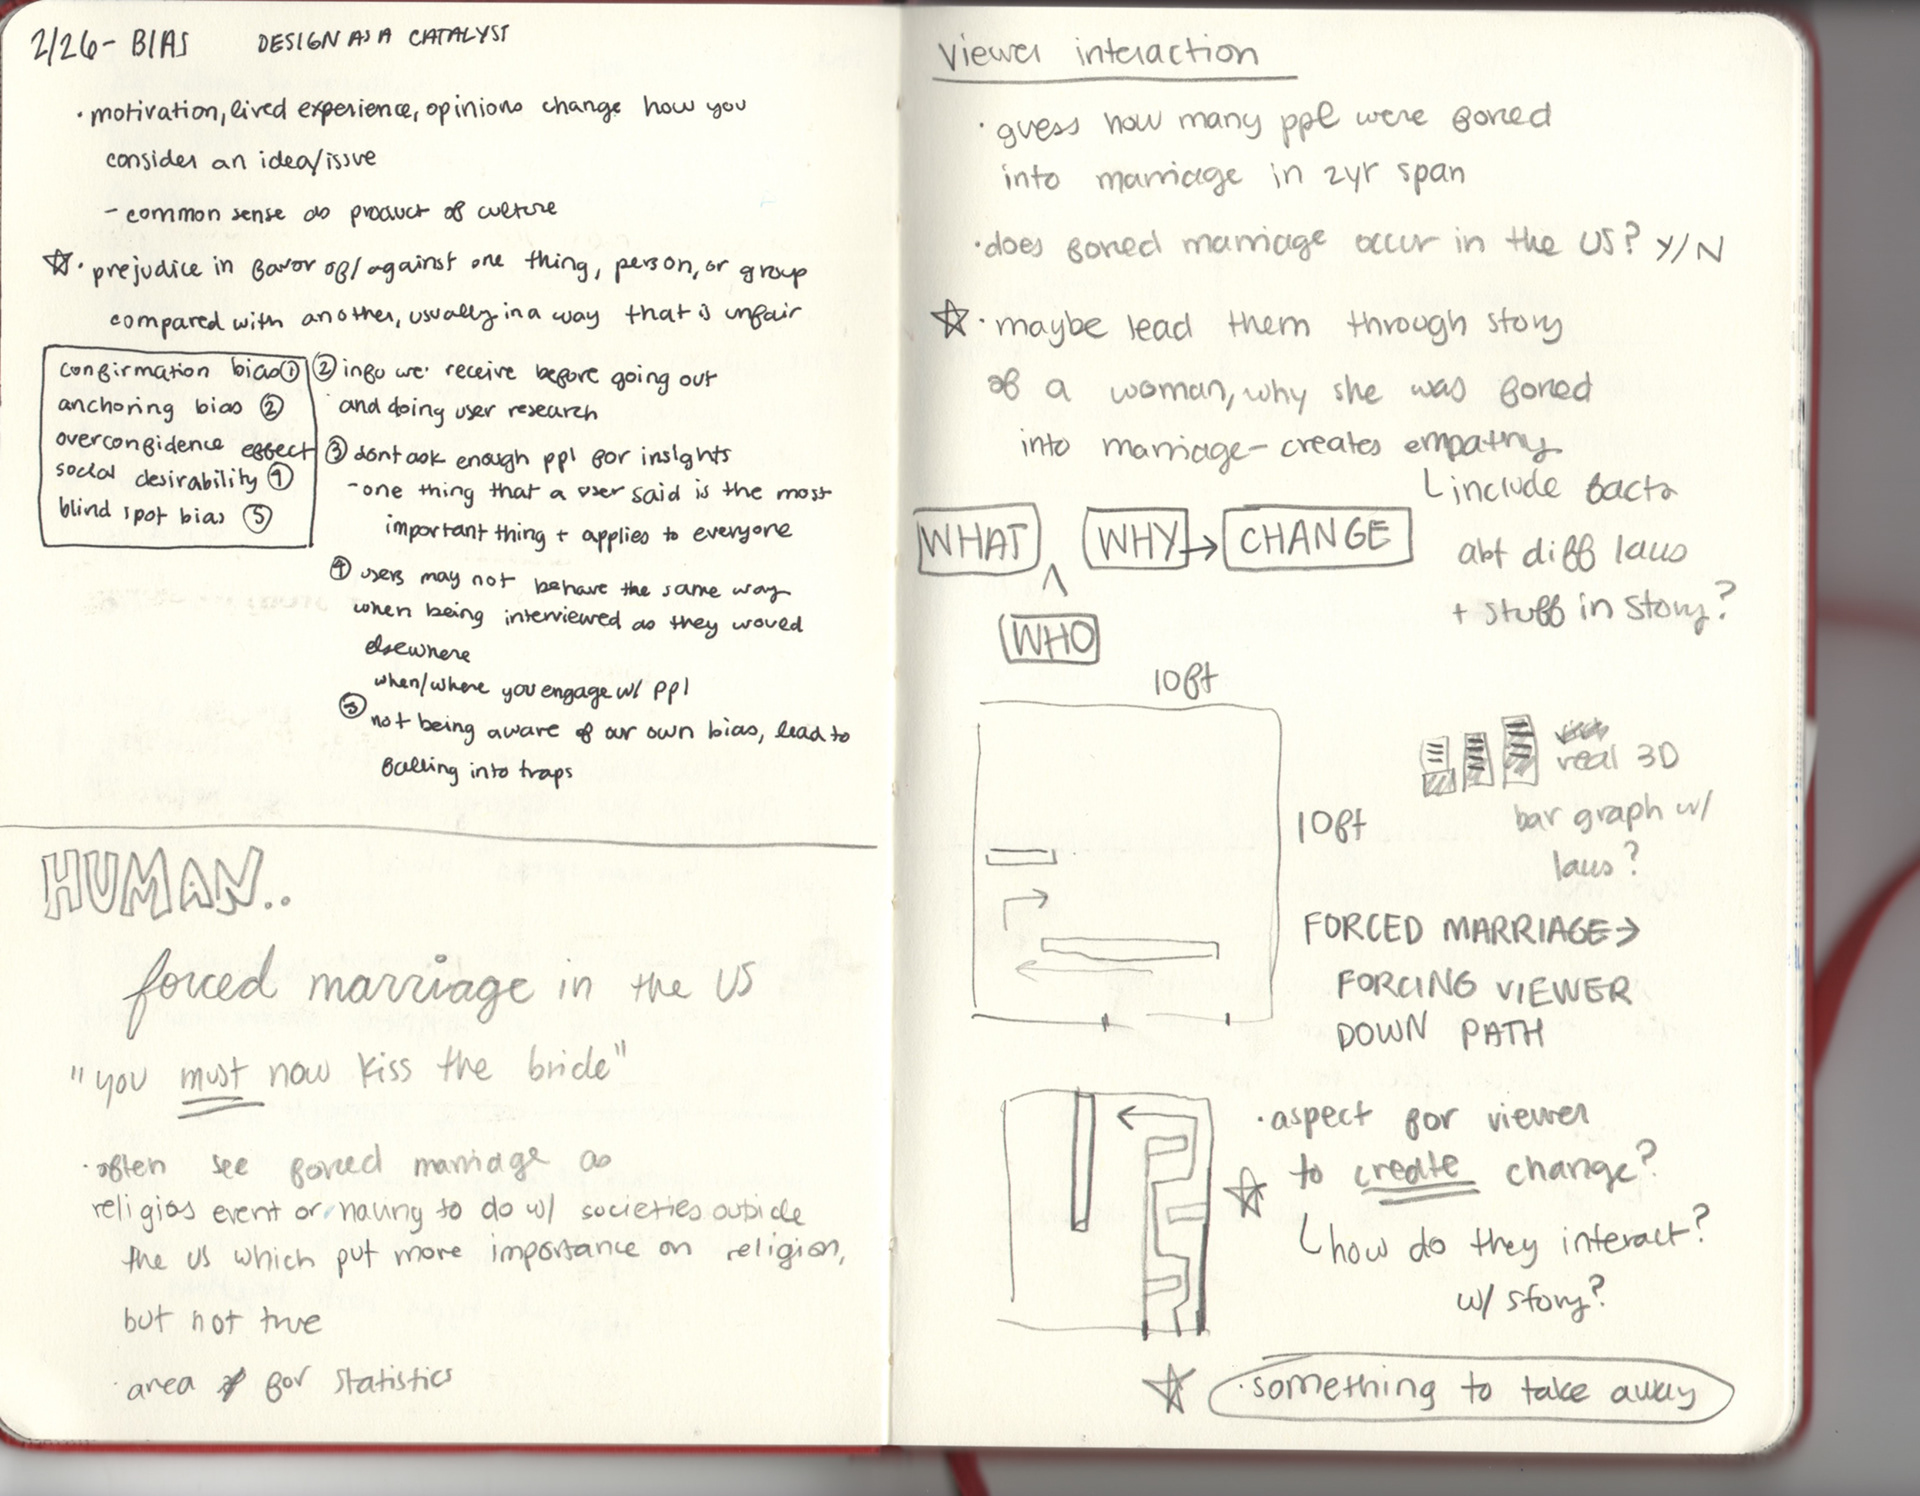 2/26- BIAS DESIGN AS A CATALYST
· motivation, lived experience, opinions change how you
consider an idea/issue
- common sense as product of culture
☆· prejudice in favor of/against one thing, person, or group
compared with another, usually in a way that is unfair
confirmation bias ①
anchoring bias ②
overconfidence effect
social desirability ④
blind spot bias ⑤
② info we receive before going out
and doing user research
③ dont ask enough ppl for insights
- one thing that a user said is the most
important thing + applies to everyone
④ users may not behave the same way
when being interviewed as they would
elsewhere
when/where you engage w/ ppl
⑤ not being aware of our own bias, lead to
falling into traps
HUMAN..
forced marriage in the US
"you must now kiss the bride"
· often see forced marriage as
religios event or having to do w/ societies outside
the US which put more importance on religion,
but not true
· area for statistics
Viewer interaction
· guess how many ppl were forced
into marriage in 2yr span
· does forced marriage occur in the US? Y/N
☆· maybe lead them through story
of a woman, why she was forced
into marriage - creates empathy
└ include facts
abt diff laws
+ stuff in story?
WHAT WHY → CHANGE
^
WHO
10ft
10ft
real 3D
bar graph w/
laws?
FORCED MARRIAGE →
FORCING VIEWER
DOWN PATH
· aspect for viewer
☆ to create change?
└ how do they interact?
w/ story?
☆ · something to take away